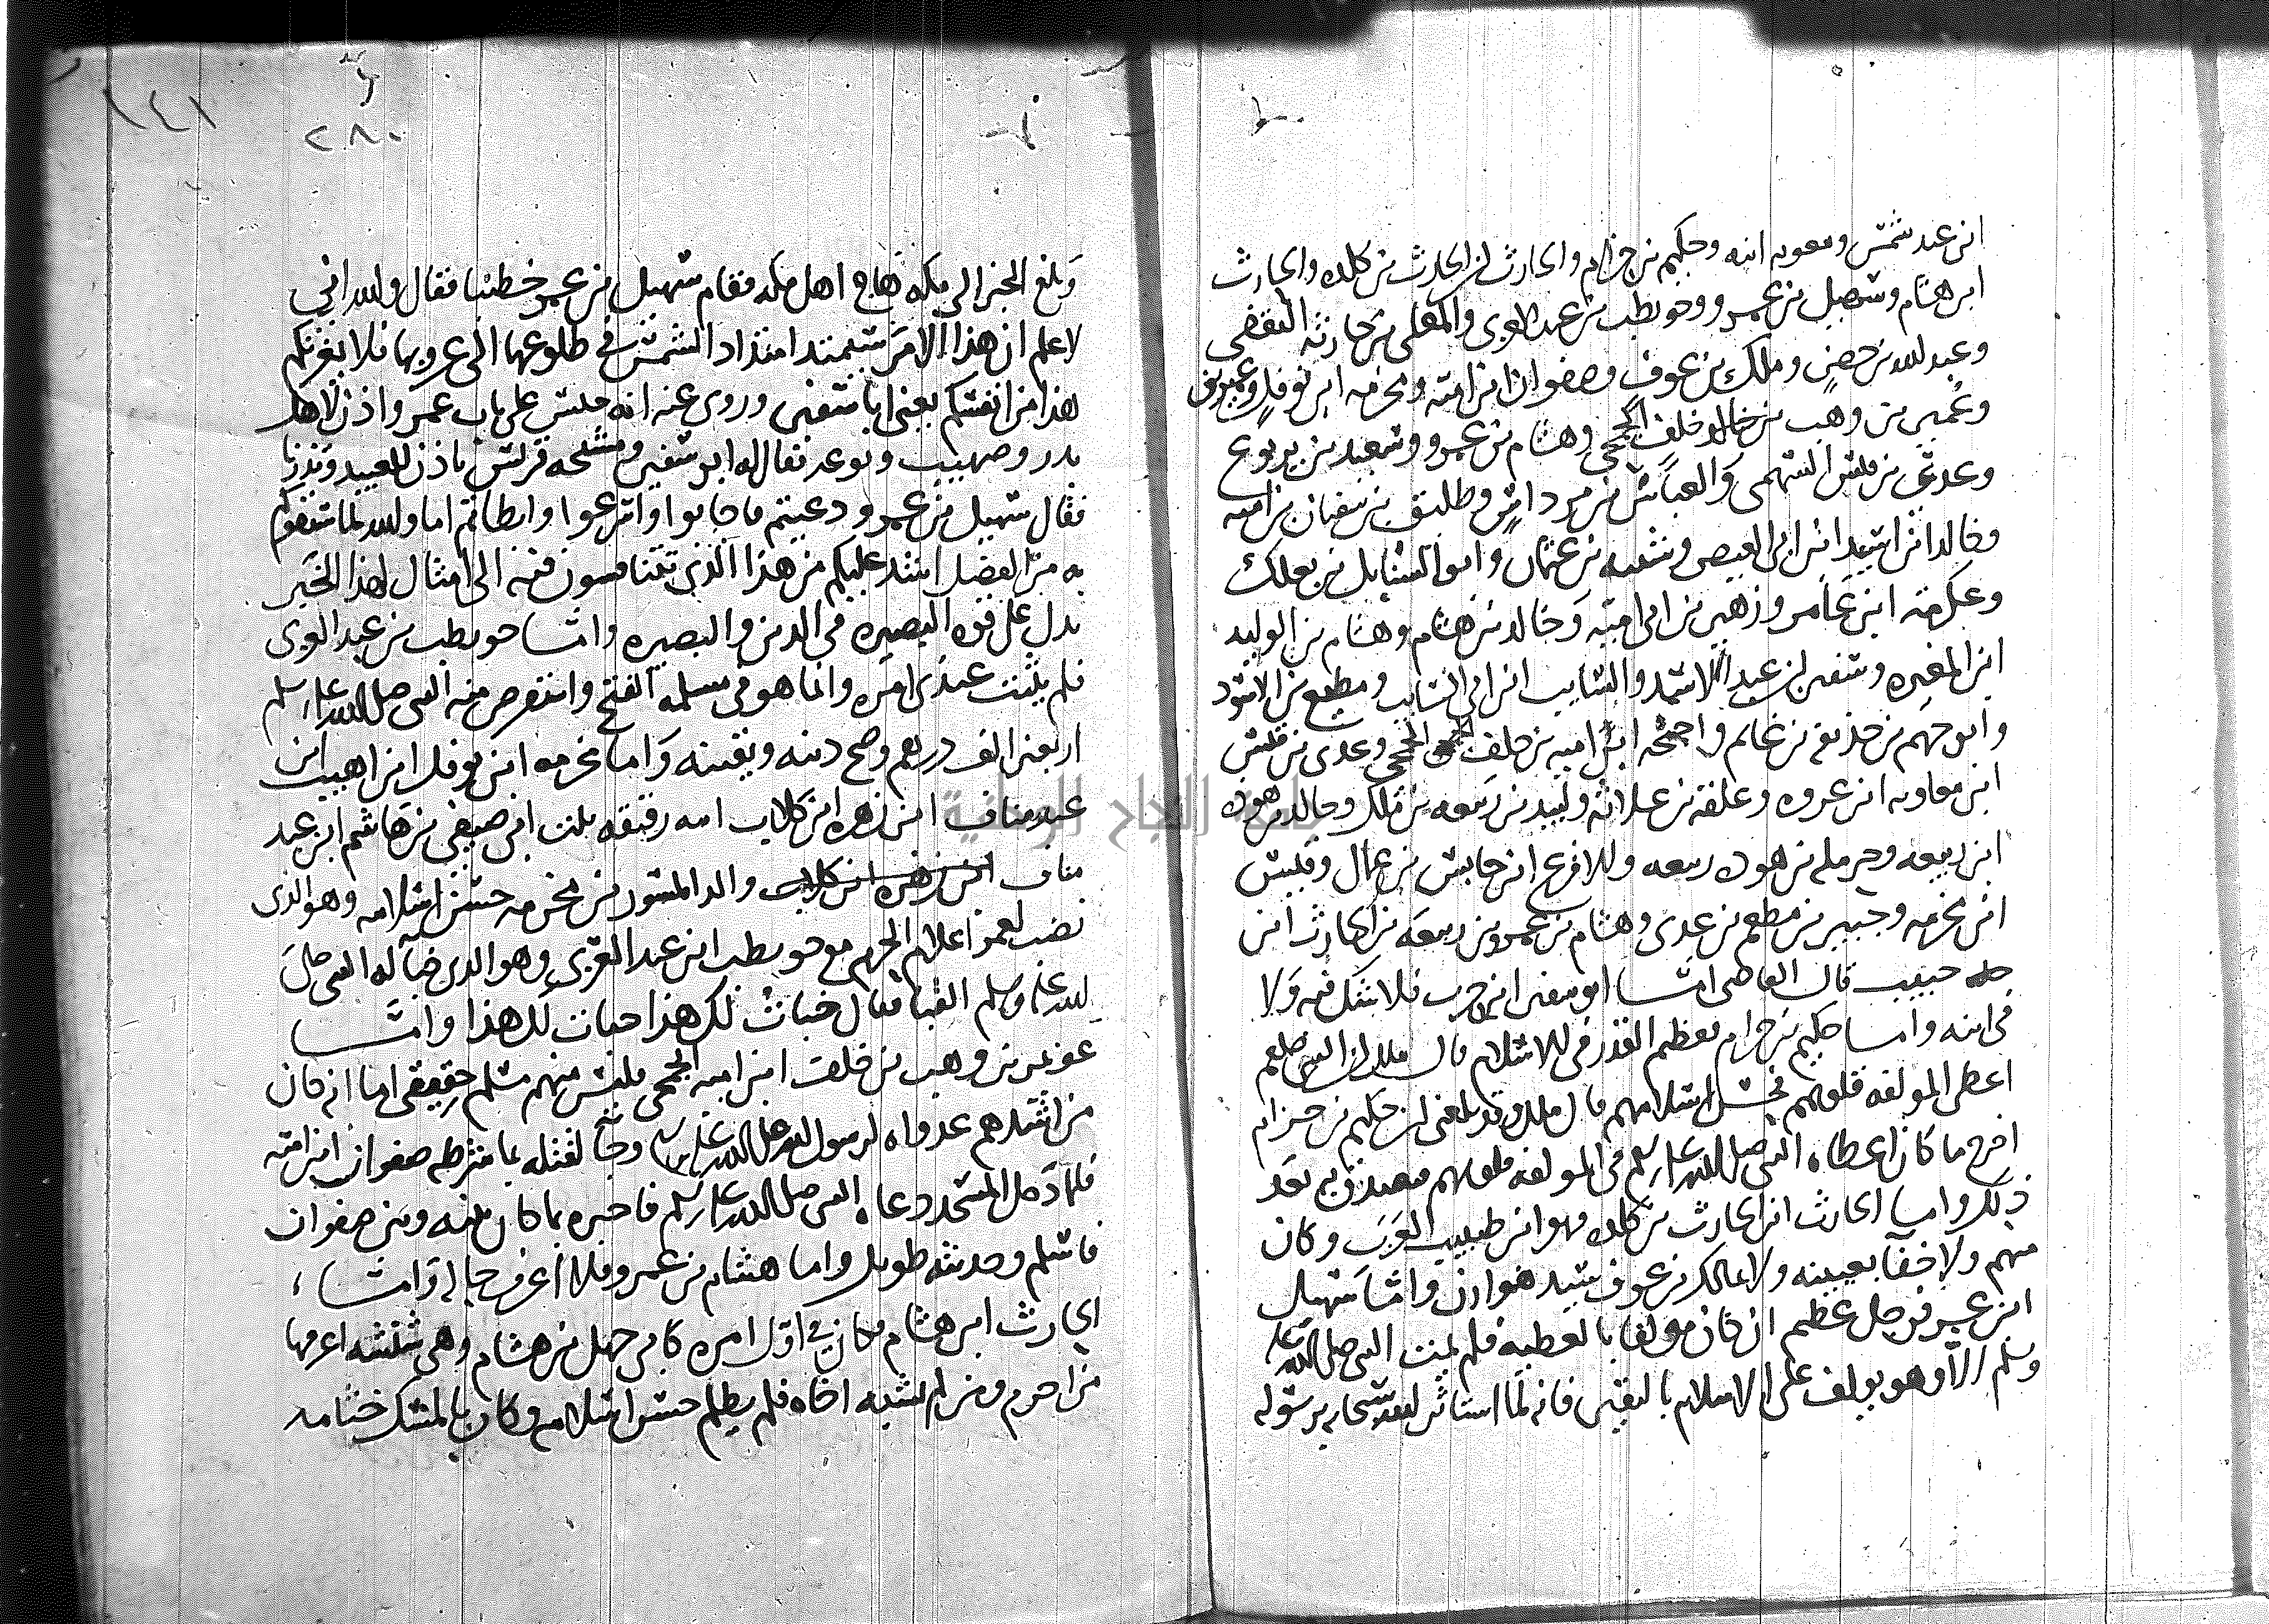 ابن عبد شمس ومعويه ابنه وحكيم بن حزام والحارث ابن الحارث بن كلده والحارث
ابن هشام وسهيل بن عمرو وحويطب بن عبد العزي والمعلى بن حارثه الثقفي
وعبد الله بن حصن وملك بن عوف وصفوان ابن اميه ومخرمه ابن نوفل وعمير بن
وعمير بن وهب بن خالد خلف الجمحي وهشام بن عمرو وسعيد بن يربوع
وعدي بن قيس السهمي والعباس بن مرداس وطليق بن سفيان بن اميه
وخالد ابن اسيد ابن ابي العيص وشيبه بن عثمان وابو السنابل بن بعكك
وعكرمه ابن عامر وزهير بن ابي اميه وخالد بن هشام وهشام بن الوليد
ابن المغيره وسفين ابن عبد الاسد والسايب ابن ابي السايب ومطيع بن الاسود
وابو جهم بن حذيفه بن غانم واحيحه ابن اميه بن خلف الجمحي وعدي بن قيس
ابن معاويه ابن عروه وعلقمه بن علاثه ولبيد بن ربيعه بن ملك وخالد بن هوذه
ابن ربيعه وحرمله بن هوذه ربيعه والاقرع ابن حابس بن عقال وقيس
ابن مخرمه وجبير بن مطعم بن عدي وهشام بن عمرو بن ربيعه بن الحارث ابن
حبيب قال القاضي اما ابو سفين ابن حرب فلا شك فيه ولا
في ابنه واما حكيم بن حزام فعظيم القدر في الاسلام قال ملك ان النبي صلعم
اعطى المولفه قلوبهم فحسن اسلامهم قال ملك وقد بلغني ان حكيم بن حزام
اخرج ما كان اعطاه النبي صلى الله عليه وسلم في المولفه قلوبهم فتصدق به بعد
ذلك واما الحارث ابن الحارث بن كلده فهو ابن طبيب العرب وكان
منهم ولا خفا بعيينه ولا بمالك بن عوف سيد هوازن واما سهيل
ابن عمرو فرجل عظيم ان كان مولفا بالعطيه فلم يمت النبي صلى الله عليه
وسلم الا وهو مولف على الاسلام باليقين فانه لما استاثر الله سبحانه برسوله
١٤١
٢٨٠
وبلغ الخبر الى مكه هاج اهل مكه فقام سهيل بن عمرو خطيبا فقال والله اني
لاعلم ان هذا الامر سيمتد امتداد الشمس في طلوعها الى غروبها فلا يغرنكم
هذا من انفسكم يعني ابا سفين وروى عنه انه جلس على باب عمر واذن لاهل
بدر وصهيب ونوعه فقال له ابو سفين ومشيخه قريش ياذن للعبيد ويذرنا
فقال سهيل بن عمرو دعيتم فاجابوا واسرعوا وابطاتم اما والله لما سبقوكم
به من الفضل اشد عليكم من هذا الذي تتنافسون فيه الى امثال لهذا الخبر
يدل على قوه البصيره في الدين والبصيره واما حويطب بن عبد العزى
فلم يثبت عندي امره وانما هو في مسلمه الفتح واستقرض منه النبي صلى الله عليه وسلم
اربعين الف درهم وصح دينه ويقينه واما مخرمه ابن نوفل ابن اهيب ابن
عبد مناف ابن زهره ابن كلاب امه رقيقه بنت ابي صيفي بن هاشم ابن عبد
مناف ابن زهره ابن كلاب والد المسور بن مخرمه حسن اسلامه وهو الذي
نصب لعمر اعلام الحرم مع حويطب ابن عبد العزى وهو الذي خبا له النبي صلى
الله عليه وسلم القبا فقال خبات لك هذا خبات لك هذا واما
عمير بن وهب بن خلف ابن اميه الجمحي فليس منهم مسلم حقيقي اما انه كان
من اشدهم عداوه لرسول الله صلى الله عليه وسلم وجا لقتله بما شرطه صفوان ابن اميه
فلما دخل المسجد دعاه النبي صلى الله عليه وسلم فاخبره بما كان بينه وبين صفوان
فاسلم وحديثه طويل واما هشام بن عمرو فلا اعرف حاله واما
الحارث ابن هشام فكان في اول امره كابي جهل بن هشام وهي شنشنه اعرفها
من اخزم ومن اشبه اخاه فلم يظلم حسن اسلامه وكان بالمسك ختامه